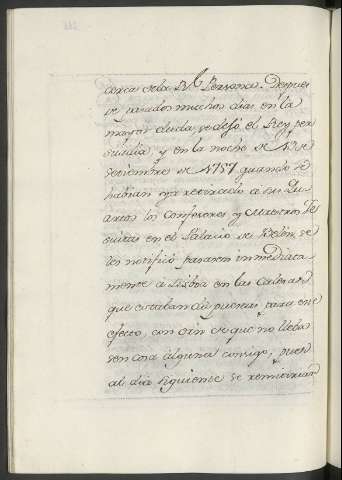 cerca de la Rl Persona. Despues
de pasados muchos dias en la
mayor duda, se dejó el Rey per
suadir, y en la noche de de
Septiembre de 1757 quando se
habian ya retirado a sus Qu
artos los Confesores y Maestros Je
suitas en el Palacio de Belén, se
les notificó pasasen inmediata
mente á Lisboa en las Calesas
que estaban á la puerta para este
efecto, con orn de que no lleba
sen cosa alguna consigo, pues
al dia siguiente se remitirian